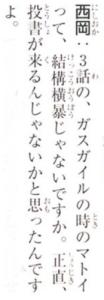 西岡：3話の、ガスガイルの時のマトイ
って、結構横暴じゃないですか。正直、
投書が来るんじゃないかと思ったんです
よ。